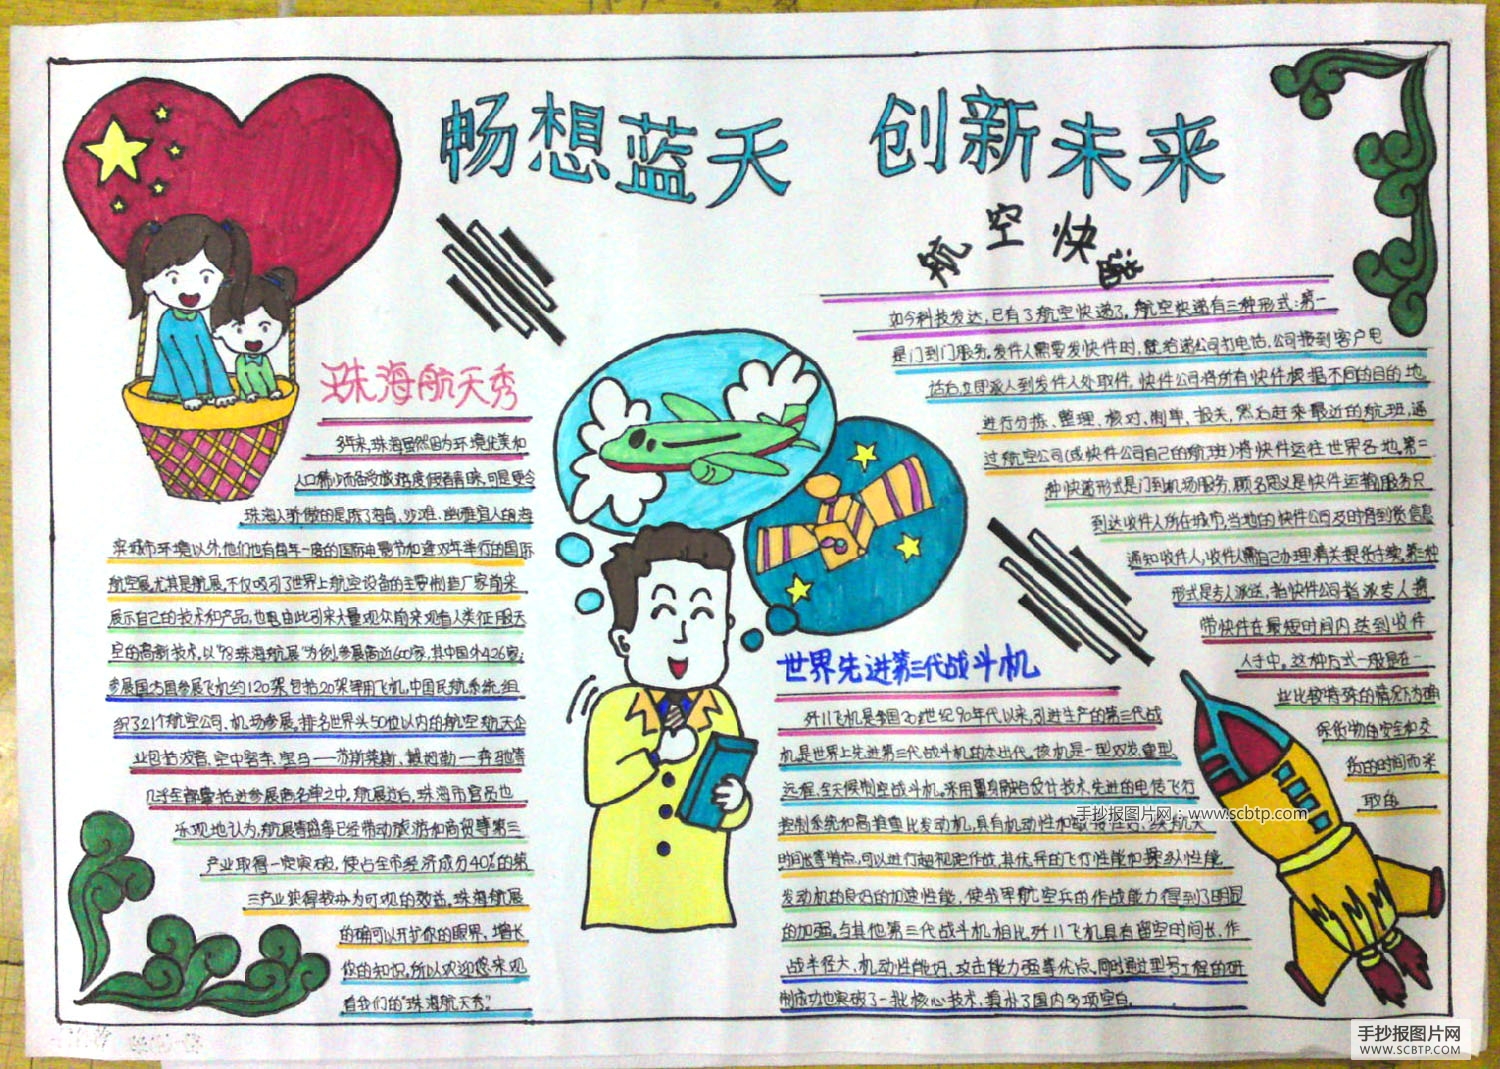 畅想蓝天 创新未来
航空快递
如今科技发达,已有了航空快递了。航空快递有三种形式:第一
是门到门服务。发件人需要发快件时,就给递公司打电话,公司接到客户电
话后,立即派人到发件人处取件。快件公司将所有快件根据不同的目的地
进行分拣、整理、核对、制单、报关,然后赶来最近的航班,通
过航空公司(或快件公司自己的航班)将快件运往世界各地。第二
种快递形式是门到机场服务,顾名思义是快件运输服务只
到达收件人所在城市,当地的快件公司及时将到货信息
通知收件人,收件人需自己办理清关提货手续。第三种
形式是专人派送,指快件公司指派专人携
带快件在最短时间内达到收件
人手中。这种方式一般是在一
些比较特殊的情况下,为确
保货物的安全和交
货的时间而采
取的
珠海航天秀
多年来,珠海虽然因为环境优美和
人口稀少而备受旅游度假者青睐,可是更令
珠海人骄傲的是除了海岛、沙滩、幽雅宜人的海
滨城市环境以外,他们也有每年一度的国际电影节和逢双年举行的国际
航空展。尤其是航展,不仅吸引了世界上航空设备的主要制造厂家前来
展示自己的技术和产品,也由此引来大量观众前来观看人类征服天
空的高新技术。以"98珠海航展"为例,参展商近600家,其中国外426家;
参展国为国参展飞机约120架,包括20架军用飞机,中国民航系统,组
织了21个航空公司、机场参展。排名世界头50位以内的航空航天企
业包括波音、空中客车、罗马——苏斯莱斯、戴姆勒——奔驰等
几乎全部囊括进参展商名单之中。航展过后,珠海市官员也
乐观地认为,航展等盛事已经带动旅游和商贸等第三
产业取得一定突破,使占全市经济成分40%的第
三产业获得较为可观的效益。珠海航展
的确可以开扩你的眼界、增长
你的知识。所以欢迎您来观
看我们的"珠海航天秀"。
世界先进第三代战斗机
歼11飞机是我国20世纪90年代以来,引进生产的第三代战
机,是世界上先进第三代战斗机的杰出代。该机是一型双发、重型
远程、全天候制空战斗机。采用翼身融合设计技术、先进的电传飞行
控制系统和高推重比发动机,具有机动性和敏捷性好、续航大
时间长等特点,可以进行超视距作战。其优异的飞行性能和操纵性能
发动机的良好的加速性能,使我军航空兵的作战能力得到了明显
的加强。与其他第三代战斗机相比,歼11飞机具有留空时间长、作
战半径大、机动性能好、攻击能力强等优点。同时通过型号工程的研
制成功也突破了一批核心技术,填补了国内多项空白。
手抄报图片网:www.scbtp.com
手抄报图片网
WWW.SCBTP.COM